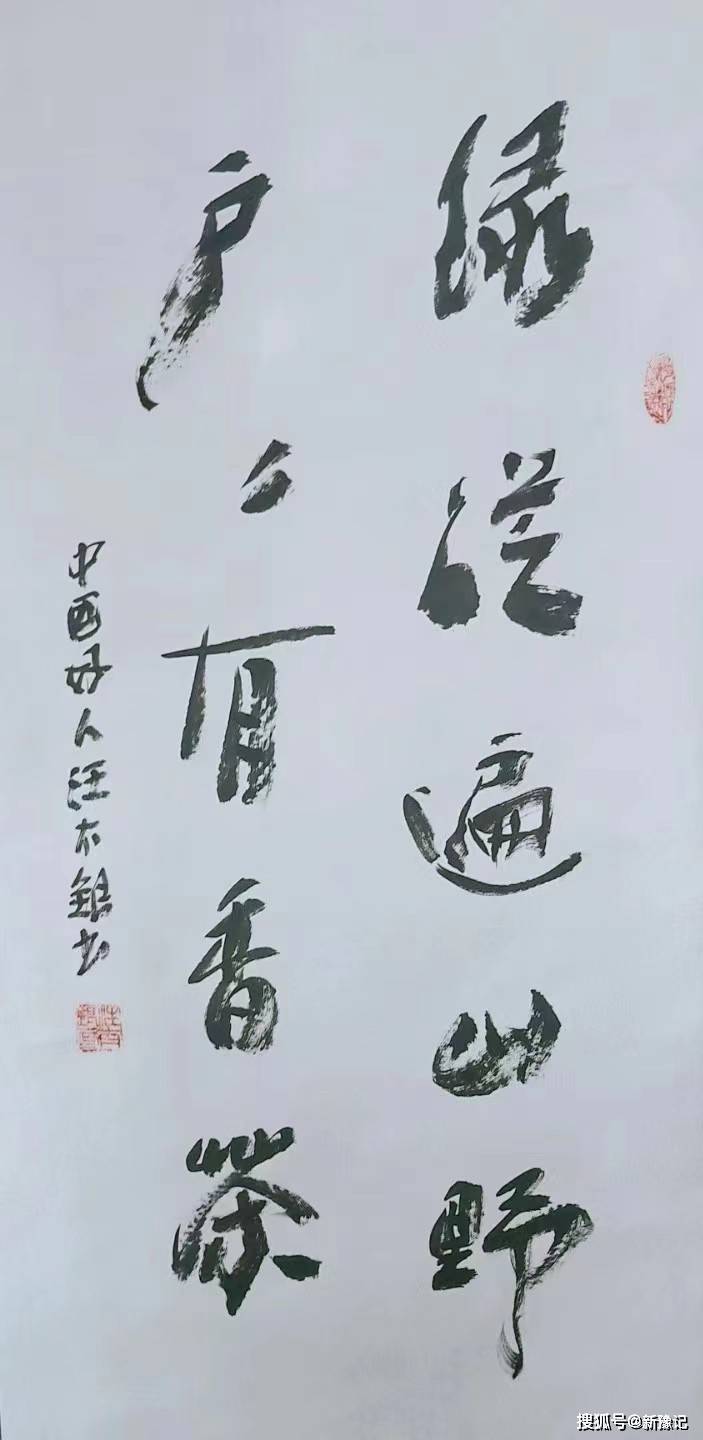 绿從遍山野
户々有香茶
中国好人汪 銀书
搜狐号@新豫记